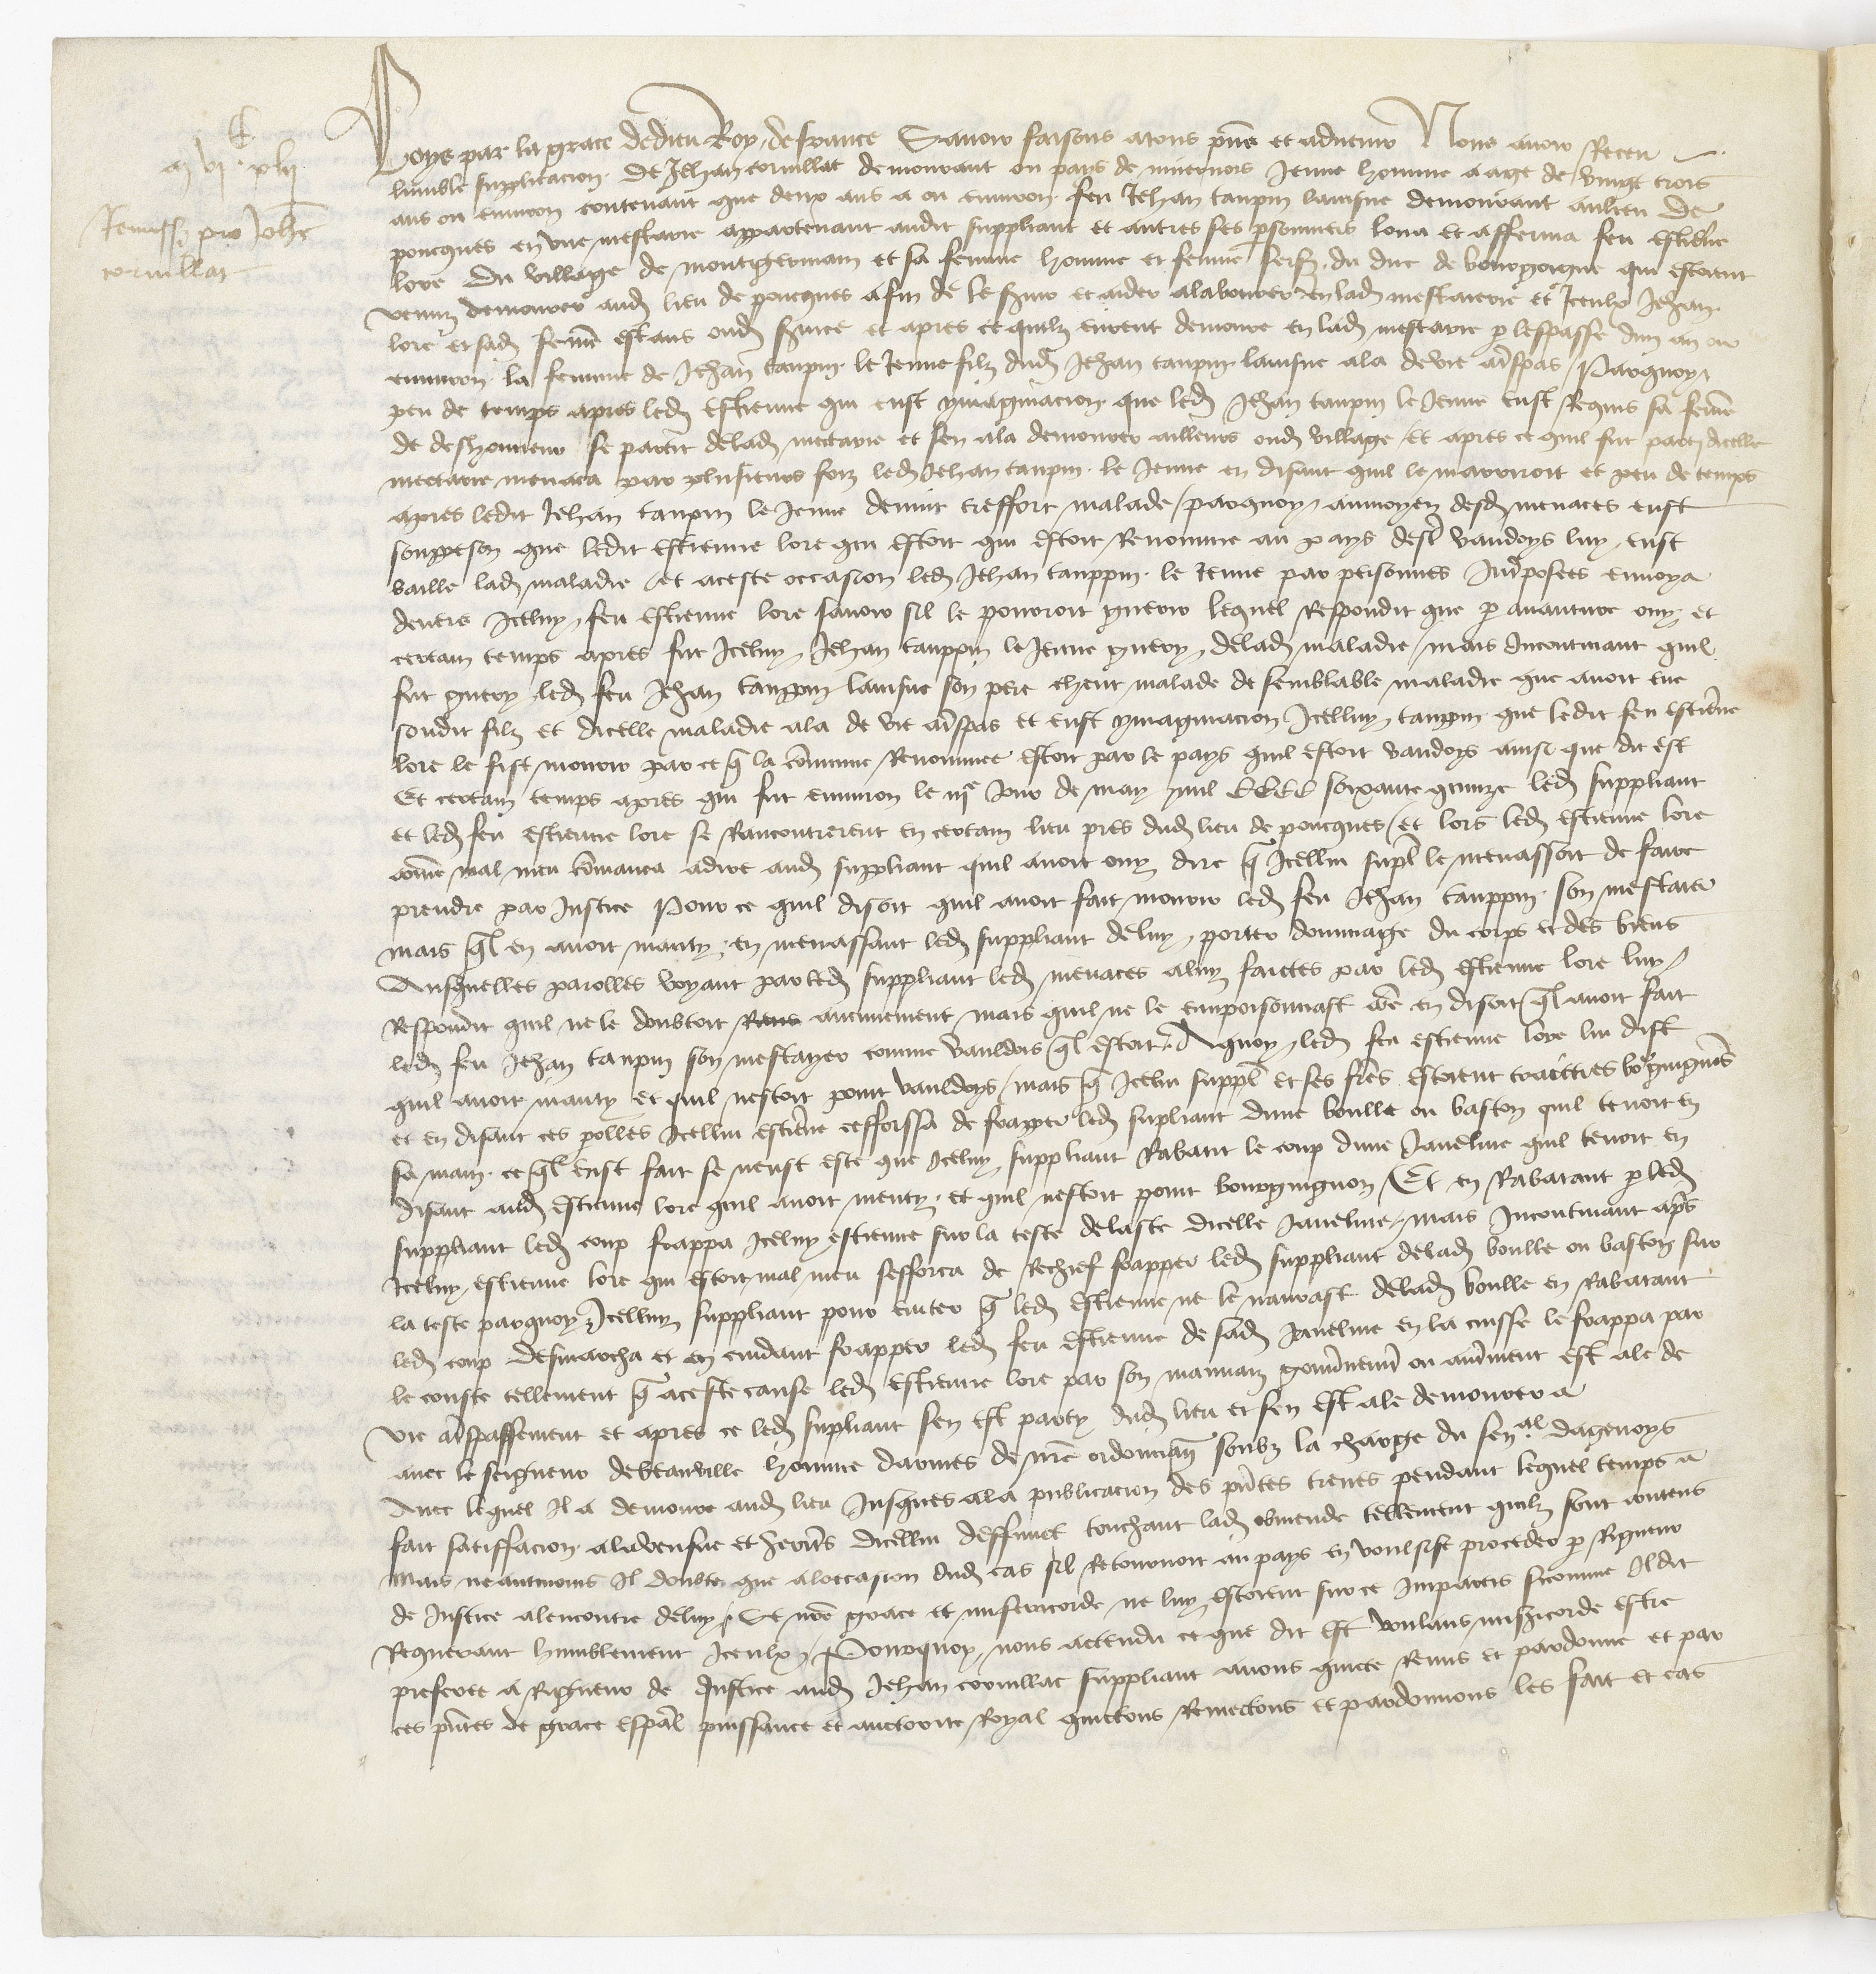 m vic xlij
Remissio pro Johanne
cornillat
Loys par la grace de dieu Roy de france Savoir faisons atous pns et advenir Nous avoir Receu
lumble supplicacion de Jehan cornillat demourant ou pays de nivernois Jeune homme aage de vingt trois
ans ou environ contenant que deux ans a ou environ feu Jehan taupin laisne demourant aulieu de
poucques en une mestairie appartenant audit suppliant et autres ses personniers loua et afferma feu estiene
lore du village de montgermain et sa femme homme et femme serfz du duc de bourgoigne qui estoient
venuz demourer aud lieu de poucques afin de le svir et aider alabourer en lad mestairie et Iceulx Jehan
lore et sad femme estans oud svice et apres ce quilz eurent demoure en lad mestairie p lespasse dun an ou
environ la femme de Jehan taupin le Jeune filz dud Jehan taupin laisne ala devie atspas Parquoy
peu de temps apres led Estienne qui eust ymaginacion que led Jehan taupin le Jeune eust Requis sa feme
de deshonneur se partit delad mectairie et sen ala demourer ailleurs oud village et apres ce quil fut party dicelle
mectairie menaca par plusieurs foiz led Jehan taupin le Jeune en disant quil le marriroit et peu de temps
apres ledit Jehan taupin le Jeune devint treffort malade parquoy aumoyen desd menaces eust
souppeson que ledit Estienne lore qui estoit qui estoit Renomme au pays destre vaudoys luy eust
baille lad maladie et aceste occasion led Jehan tauppin le Jeune par personnes Interposees envoya
devers Iceluy feu Estienne lore savoir sil le pourroit guerir lequel Respondit que p avanture ouy et
certain temps apres fut Iceluy Jehan tauppin le Jeune guery delad maladie mais Incontinant quil
fut guery led feu Jehan tauppin laisne son pere cheut malade de semblable maladie que avoit eue
sondit filz et dicelle maladie ala de vie atspas et eust ymaginacion Icelluy taupin que ledit feu estiene
lore le fist mourir par ce q la commune Renommee estoit par le pays quil estoit vaudoys ainsi que dit est
Et certain temps apres qui fut environ le iije Jour de may mil CCCC soixante quinze led suppliant
et led feu Estienne lore se Rancontrerent en certain lieu pres dud lieu de poucques et lors led Estienne lore
come mal meu comanca adire aud suppliant quil avoit ouy dire q Icellui supl le menassoit de faire
prendre par Justice Pour ce quil disoit quil avoit fait mourir led feu Jehan tauppin son mestaier
mais ql en avoit manty en menassant led suppliant deluy porter dommage du corps et des biens
Ausquelles parolles voyant par led suppliant led menaces aluy faictes par led Estienne lore luy
Respondit quil ne le doubtoit Riens aucunement mais quil ne le empoisonnast coe en disoit ql avoit fait
led feu Jehan taupin son mestayer comme vauldois ql estoit Aquoy led feu Estienne lore lui dist
quil avoit manty et quil nestoit point vauldoys mais q Icelui suppl et ses freres estoient traittres bourguignons
et en disant ces polles Icellui estiene cefforssa de frapper led supliant dune boulle ou baston quil tenoit en
sa main ce ql eust fait se neust este que Iceluy suppliant Rabatit le coup dune Javeline quil tenoit en
disant aud Estienne lore quil avoit menty et quil nestoit point bourguignon Et en Rabatant p led
suppliant led coup frappa Iceluy Estienne sur la teste delaste dicelle Javeline mais Incontinant aps
Iceluy Estienne lore qui estoit mal meu sefforca de Rechief frapper led suppliant delad boulle ou baston sur
la teste parquoy Icelluy suppliant pour eviter q led Estienne ne le navrast delad boulle en Rabatant
led coup desmarcha et en cuidant frapper led feu Estienne de sad Javeline en la cuisse le frappa par
le couste tellement q aceste cause led Estienne lore par son mauvaiz gouvernement ou autrement est ale de
vie atspassement et apres ce led supliant sen est party dud lieu et sen Est ale demourer a
avec le seigneur de beauville homme darmes de nre ordonnance soubz la charge du senal dagenoys
Avec lequel Il a demoure aud lieu Jusques ala publicacion des pntes treves pendant lequel temps a
fait satiffacion aladvensue et heritiers dicellui deffunct touchant lad obmende tellement quilz sont contens
Mais neantmoins Il doubte que aloccasion dud cas sil Retournoit au pays en voulsist proceder p Rigueur
de Justice alencontre deluy Se nre grace et misericorde ne luy estoient sur ce Imparties sicomme Il dit
Requerant humblement Iceulx Pourquoy nous actendu ce que dit est voulans misericorde estre
preferee a Rigueur de Justice aud Jehan cornillat suppliant avons quicte Remis et pardonne et par
ces pntes de grace espal puissance et auctorite Royal quictons Remectons et pardonnons les fait et cas